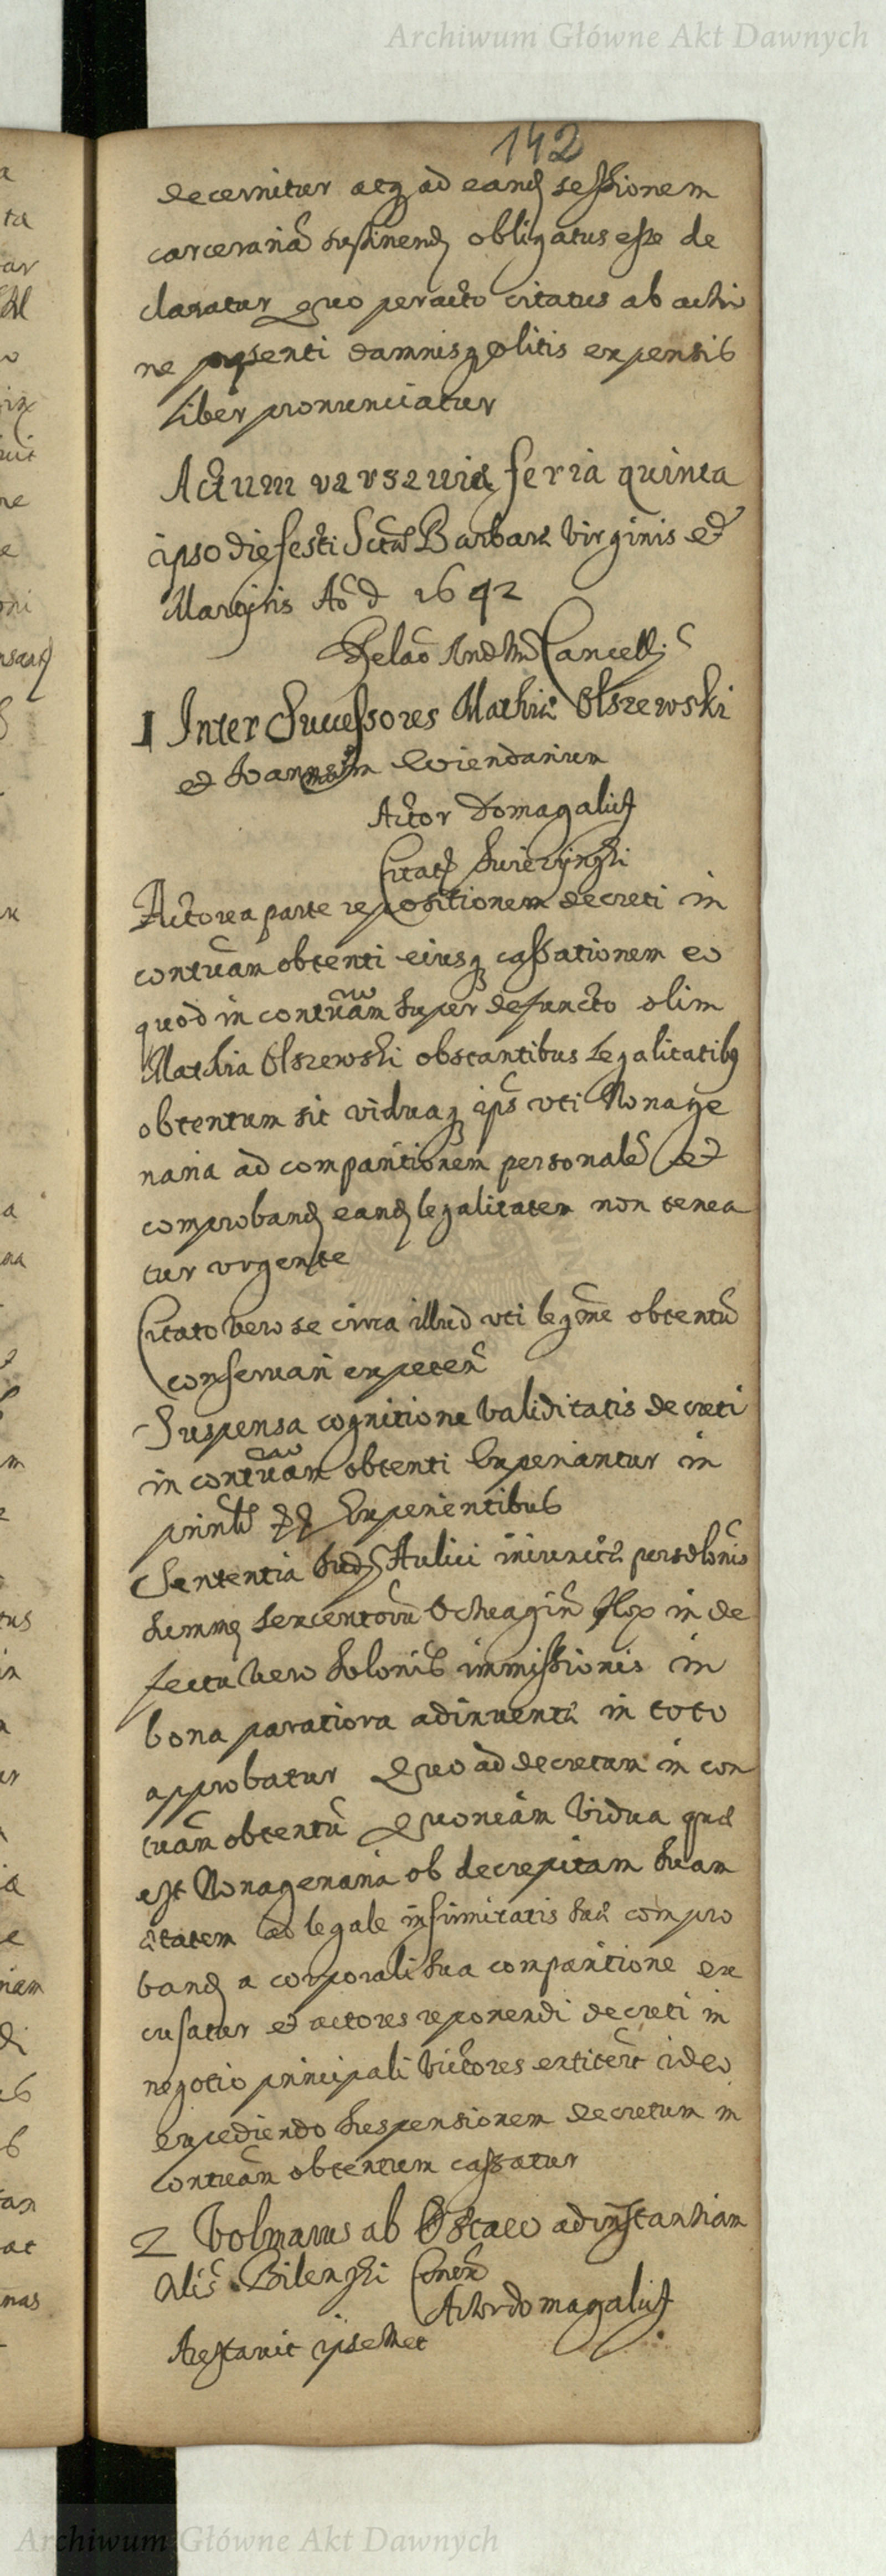 Archiwum Główne Akt Dawnych
142
decernitur atq ad eand sessionem
carceranā sustinend obligatus esse de
claratur quo peracto citatus ab actio
ne pnsenti damnisq litis expensis
liber pronunciatur
Actum varsaviæ feria quinta
ipso die festi Sctæ Barbaræ Virginis et
Martyris Aō D 1642
Cancell
1 Inter Successores Mathiæ Olszewski
et Joannem
Actor Domagalicz
Citat Swierzynski
Actorea parte repositionem decreti in
contuām obtenti eiusq cassationem eo
quod in contuām super defuncto olim
Mathia Olszewski obstantibus Legalitatibq
obtentum sit viduaq ips uti Nonage
naria ad comparitionem personalē et
comproband eand legalitatem non tenea
tur urgente
Citato vero se circa illud uti legme obtentū
conservari expeten
Suspensa cognitione validitatis decreti
in contuām obtenti Experiantur in
prinli Experientibus
Sententia Jud Aulici iniunctæ persolonis
summæ sexcentorū in de
fectu vero solonis immissionis in
bona paratiora adinventæ in toto
approbatur Quo ad decretum in con
tuām obtentū Quoneām Vidua quæ
est Nonagenaria ob decrepitam suam
ætatem ac legale infirmitatis suæ compro
band a corporali sua comparitione ex
cusatur et actores reponendi decreti in
negotio principali Victores extiterūt ideo
expediendo suspensionem decretum in
contuām obtentum cassatur
2 Volmarus ab Ostaco ad instantiam
Alis Bilenski Conen
Actor Domagalicz
Arestavit ipsemet
Archiwum Główne Akt Dawnych